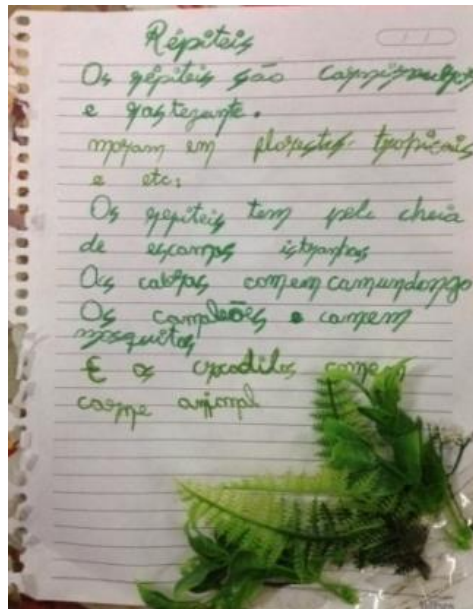 Répiteis
Os répiteis são
e rastejante.
moram em florestas tropicais
e etc:
Os repiteis tem pele cheia
de escamas istranhas
As cobras comem camundongo
Os camaleões e comem
mosquitos
E os crocodilos comem
carne animal